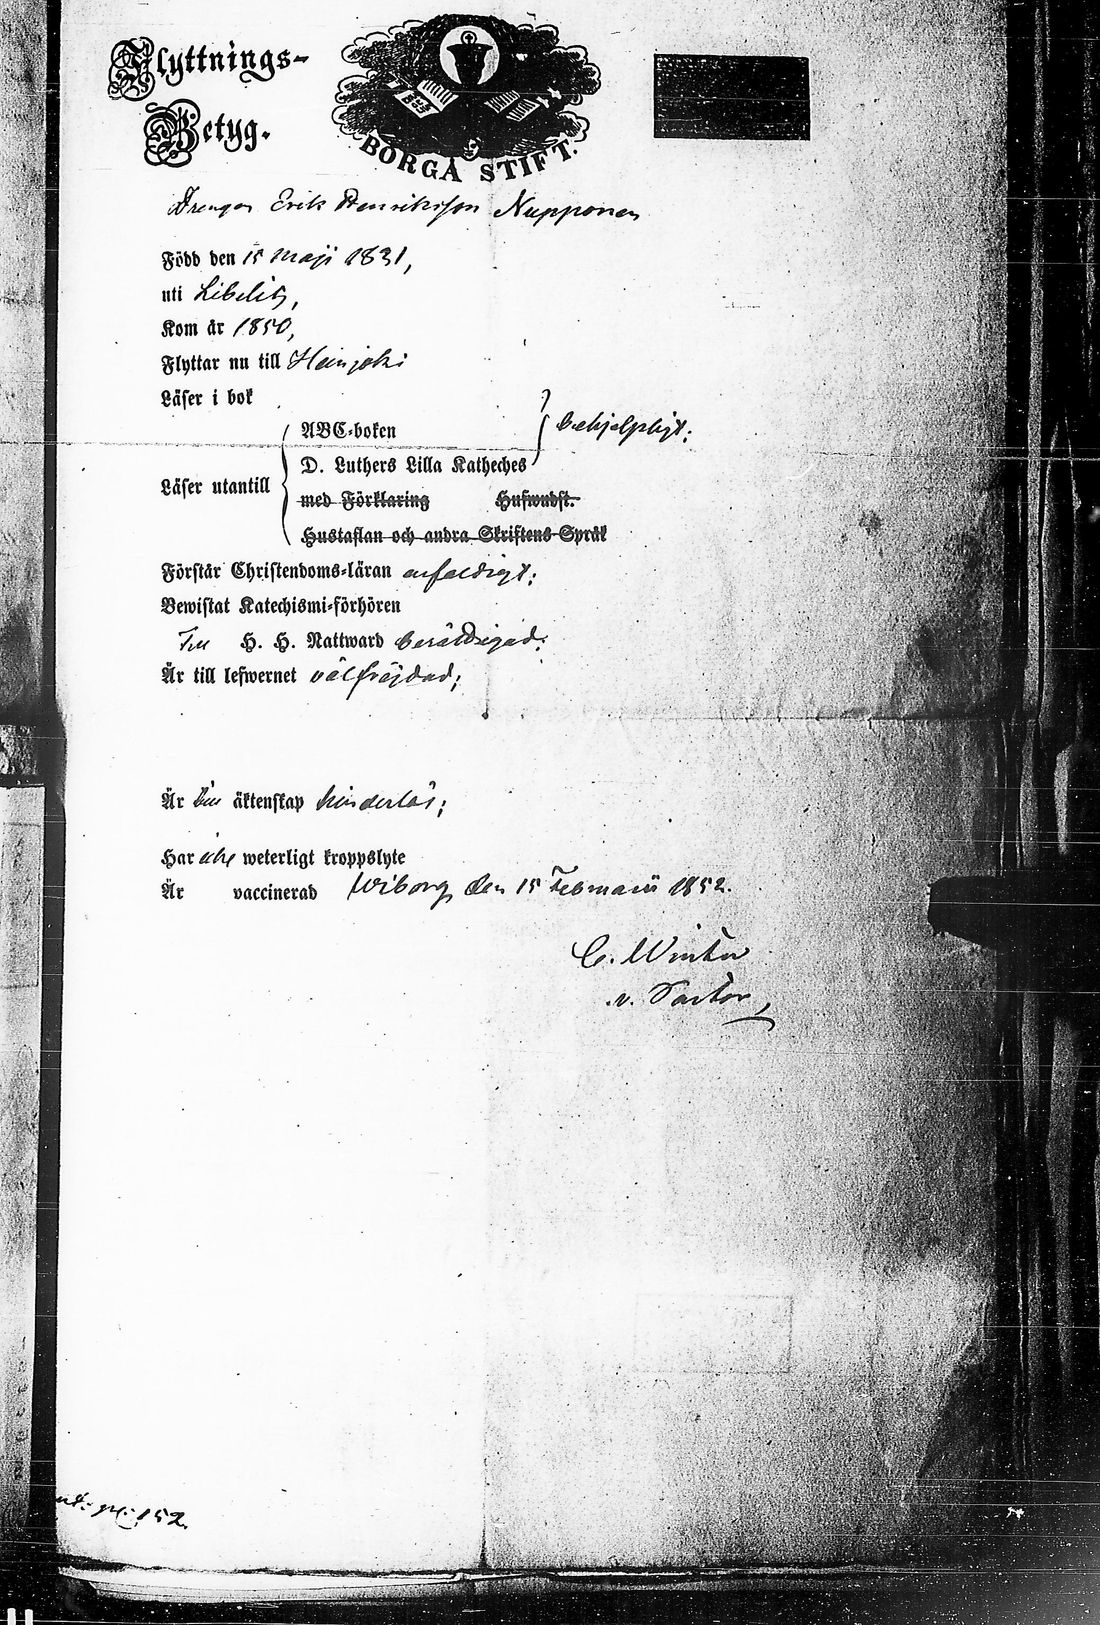 Flyttnings-
Betyg.
BORGÅ STIFT.
Drengen Erik Henriksson Nupponen
Född den 15 maji 1831,
uti Libelits,
Kom år 1850,
Flyttar nu till Heinjoki
Läser i bok
ABC-boken
behjelpligt;
D. Luthers Lilla Katheches
Läser utantill
med Förklaring Hufwudst.
Hustaflan och andra Skriftens Språk
Förstår Christendoms-läran enfaldigt;
Bewistat Katechismi-förhören
Till H. H. Nattward berättigad;
Är till lefwernet välfrejdad;
Är till äktenskap hinderlös;
Har icke weterligt kroppslyte
Är vaccinerad Wiborg den 15 Februarii 1852.
C. Winter
v. Pastor
152.